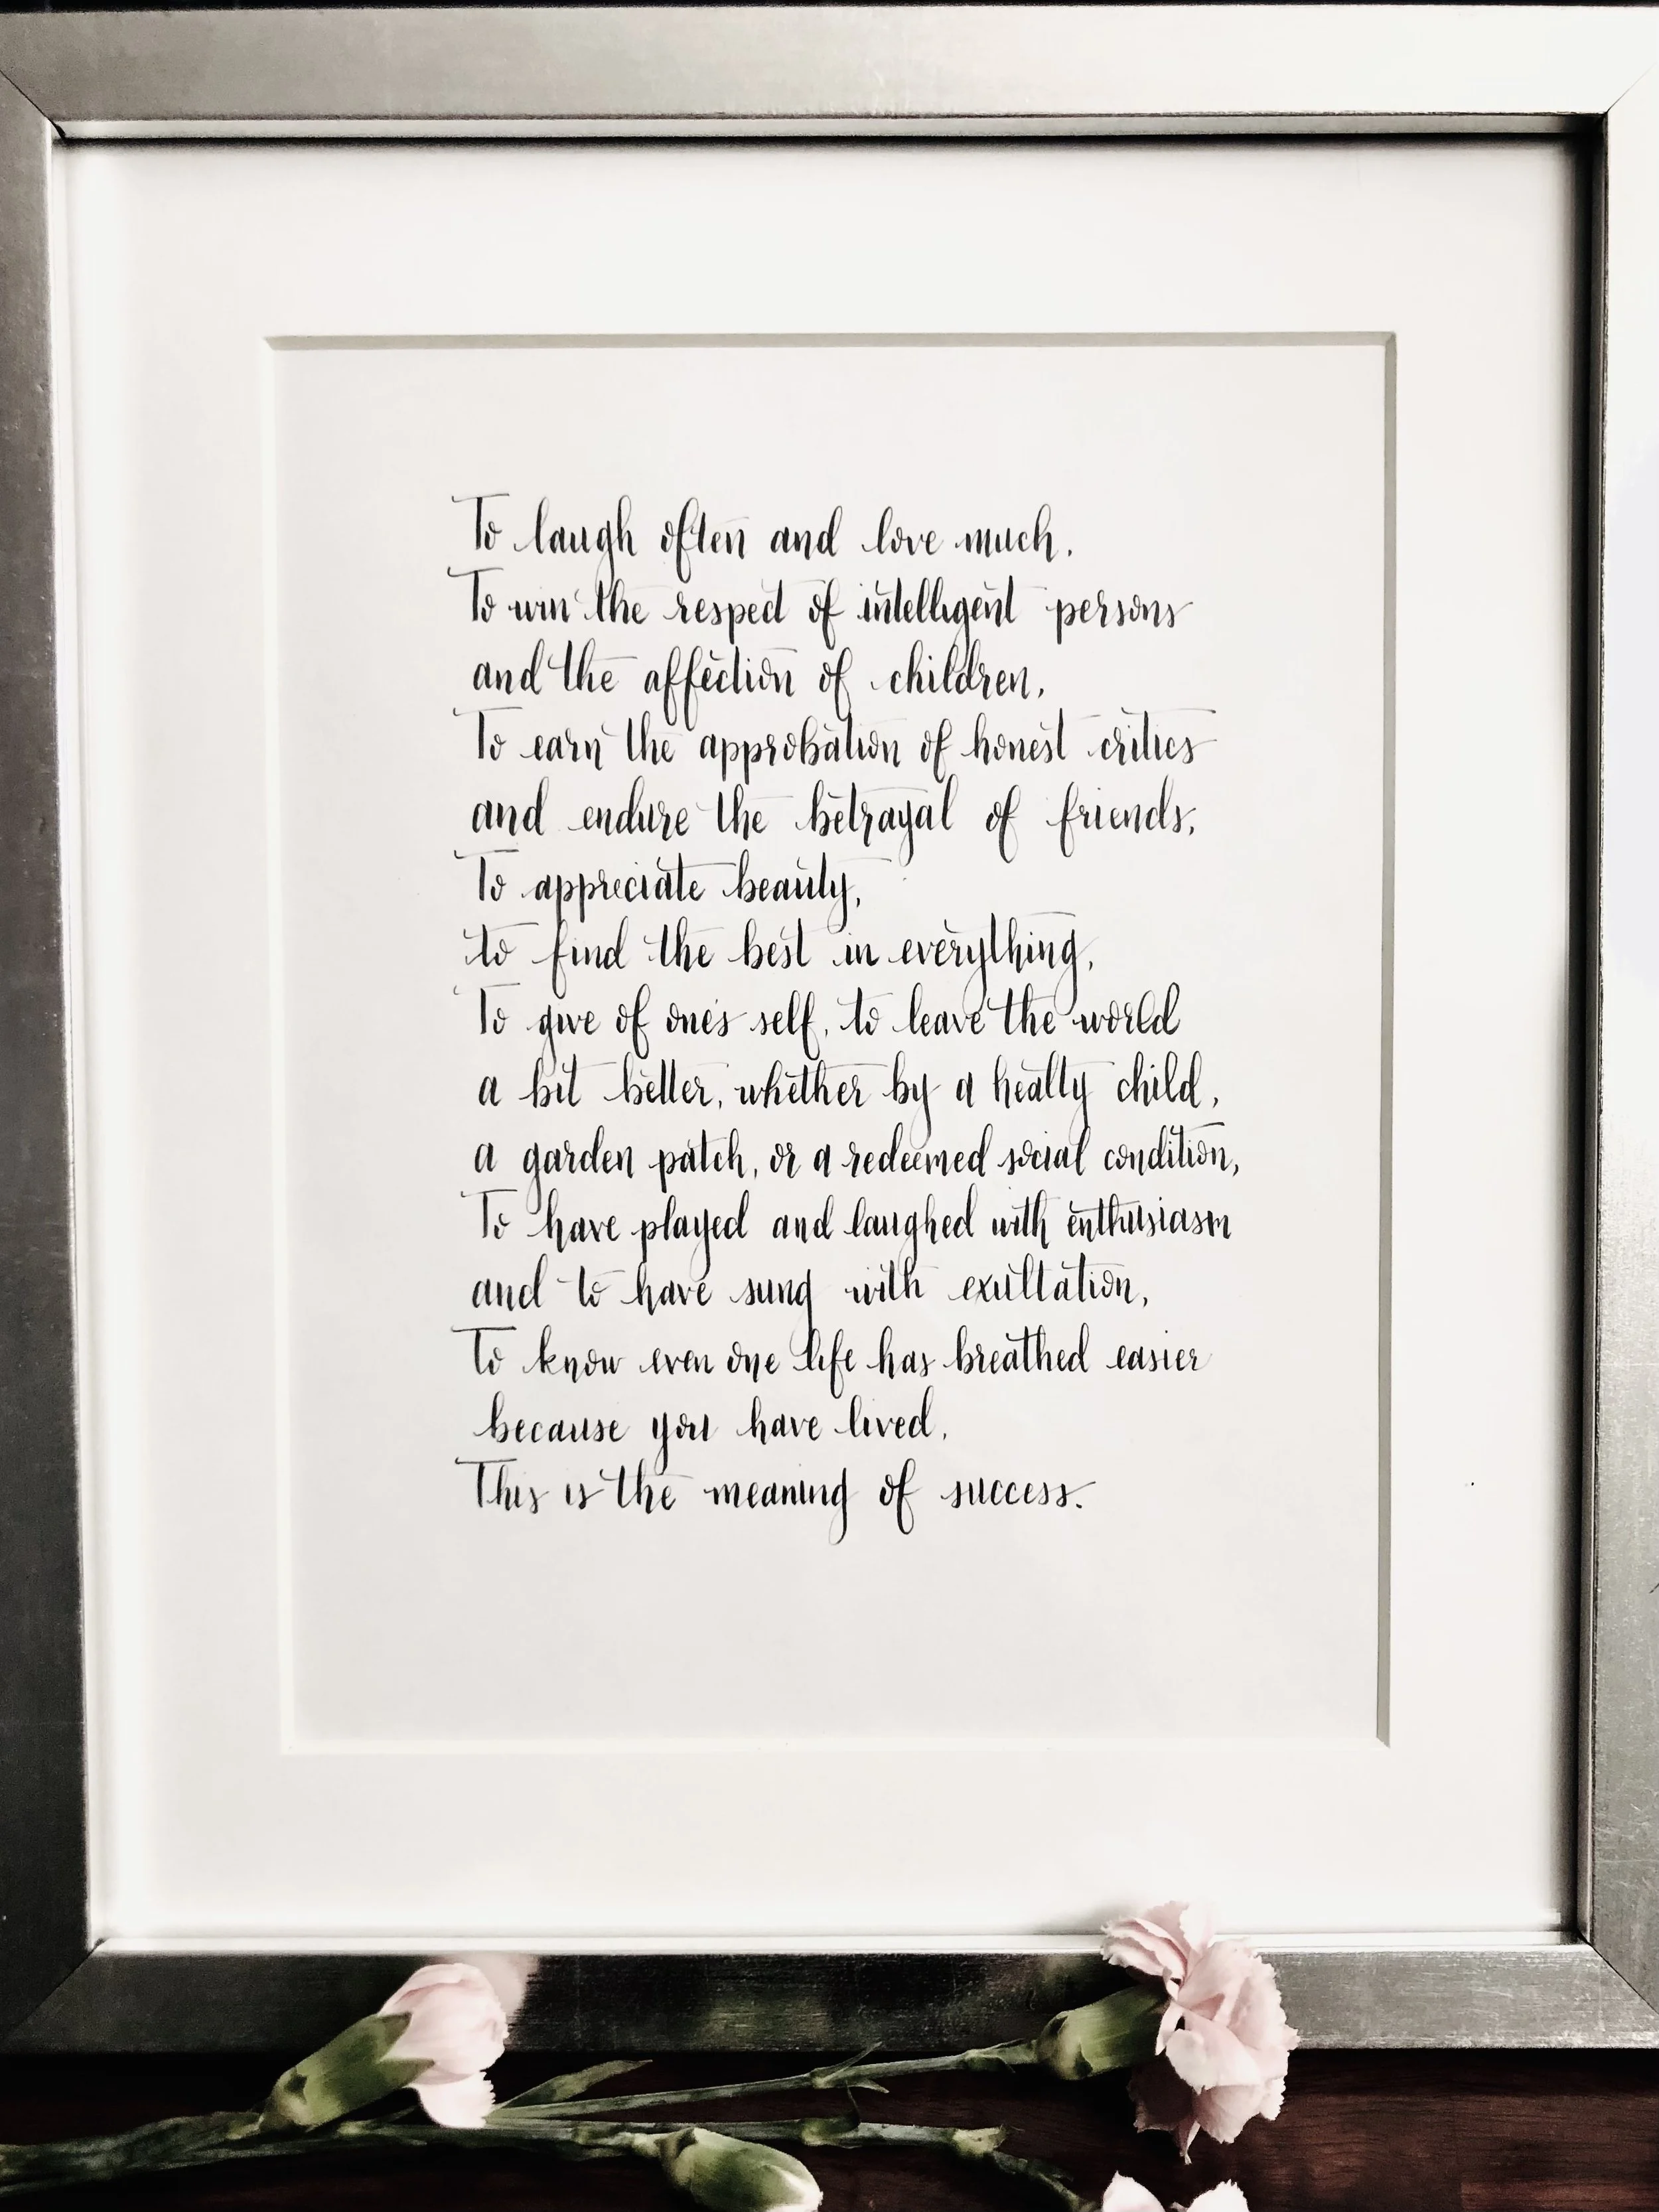 To laugh often and love much.
To win the respect of intelligent persons
and the affection of children,
To earn the approbation of honest critics
and endure the betrayal of friends,
To appreciate beauty,
to find the best in everything,
To give of one's self, to leave the world
a bit better, whether by a healty child,
a garden patch, or a redeemed social condition,
To have played and laughed with enthusiasm
and to have sung with exultation,
To know even one life has breathed easier
because you have lived.
This is the meaning of success.